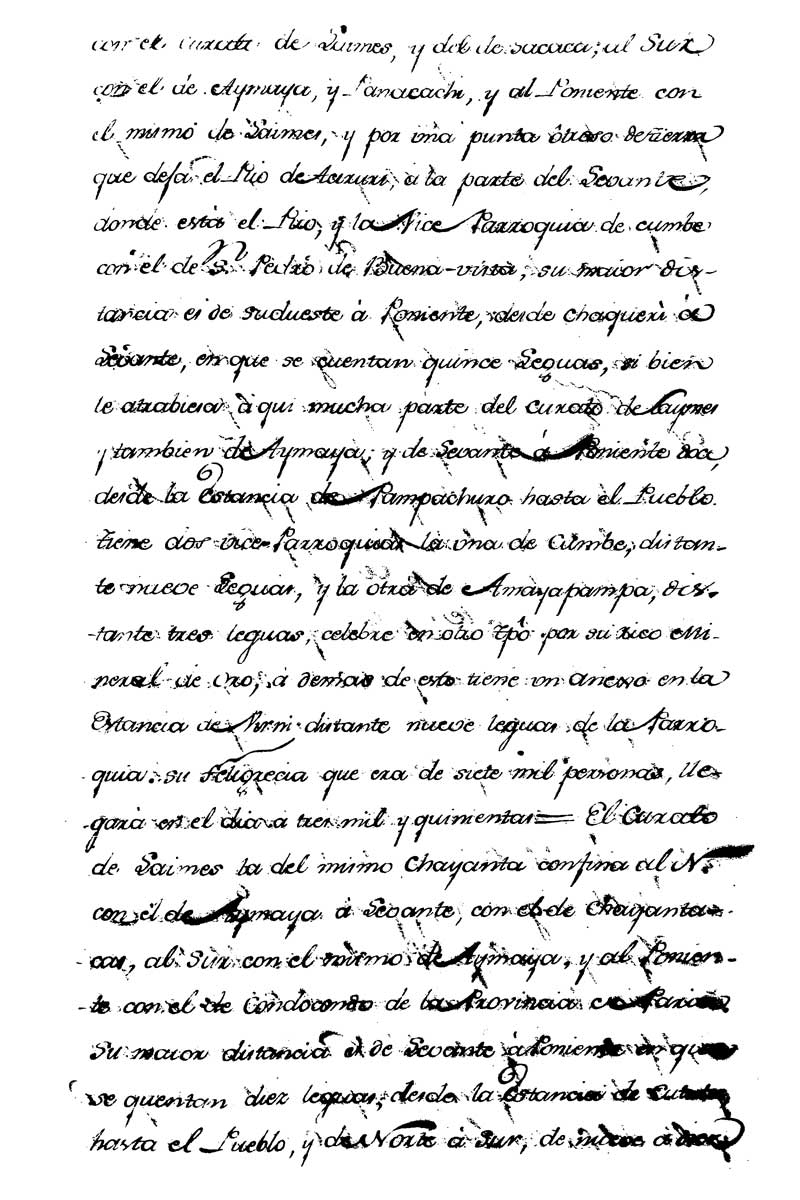 con el curato de Laimes, y del de sacaca; al Sur
con el de Aymaya, y Panacachi, y al Poniente con
el mismo de Laimes, y por vna punta ô treso de tierra
que desa el Rio de al a parte del Levante,
donde està el Rio, y la Vice Parroquia de cumbe
con el de Sn. Pedro de Buena-vista, su maior dis-
tancia es de sudueste à Poniente, desde chaqueri à
Levante, en que se cuentan quince Leguas, si bien
le atrabiesa aqui mucha parte del curato de Laymes
y tambien de Aymaya; y de Levante à Poniente
desde la Estancia de Pampachuro hasta el Pueblo.
tiene dos vice-Parroquias la vna de Cumbe, distan-
te nueve Leguas, y la otra de Amayapampa, dis-
tante tres leguas, celebre en otro tpô por su rico Mi-
neral de Oro, à demas de esto tiene vn anexo en la
Estancia de distante nueve leguas de la Parro-
quia. su Feligrecia que era de siete mil personas, lle-
garà en el dia a tres mil y quinientas = El Curato
de Laimes la del mismo Chayanta confina al N.
con el de Aymaya à Levante, con el de Chayanta-
cas, al Sur con el mismo de Aymaya, y al Ponien-
te con el de Condocondo de la Provincia de Paria
Su maior distancia es de Levante à Poniente en que
se quentan diez leguas, desde la Estancia de
hasta el Pueblo, y de Norte à Sur, de nueve a diez